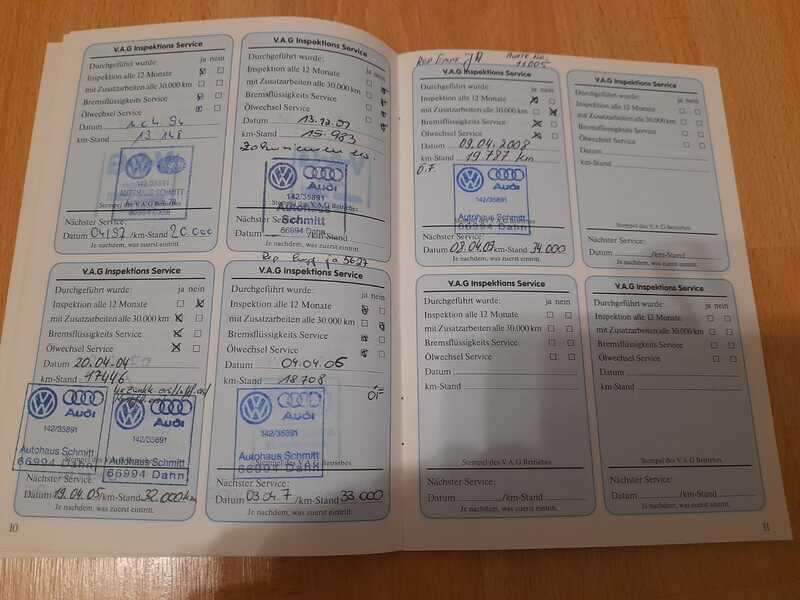 V.A.G Inspektions Service
Durchgeführt wurde: ja nein
Inspektion alle 12 Monate
mit Zusatzarbeiten alle 30.000 km
Bremsflüssigkeits Service
Ölwechsel Service
Datum
km-Stand 13 148
AUTOHAUS SCHMITT
Stempel des V.A.G Betriebes
Nächster Service:
Datum 04/97 /km-Stand 20.000
Je nachdem, was zuerst eintritt.
V.A.G Inspektions Service
Durchgeführt wurde: ja nein
Inspektion alle 12 Monate
mit Zusatzarbeiten alle 30.000 km
Bremsflüssigkeits Service
Ölwechsel Service
Datum 13.12.97
km-Stand 15.983
Audi
142/35891
Autohaus
Schmitt
66994 Dahn
Stempel des V.A.G Betriebes
Nächster Service:
Datum /km-Stand
Je nachdem, was zuerst eintritt.
V.A.G Inspektions Service
Durchgeführt wurde: ja nein
Inspektion alle 12 Monate
mit Zusatzarbeiten alle 30.000 km
Bremsflüssigkeits Service
Ölwechsel Service
Datum 20.04.04
km-Stand 17446
Audi
142/35891
Autohaus Schmitt
66994 Dahn
Audi
142/35891
Autohaus Schmitt
66994 Dahn
Stempel des V.A.G Betriebes
Nächster Service:
Datum 19.04.05 /km-Stand 32.000 km
Je nachdem, was zuerst eintritt.
10
5627
V.A.G Inspektions Service
Durchgeführt wurde: ja nein
Inspektion alle 12 Monate
mit Zusatzarbeiten alle 30.000 km
Bremsflüssigkeits Service
Ölwechsel Service
Datum 04.04.06
km-Stand 18708
Audi
142/35891
Autohaus Schmitt
66994 Dahn
Stempel des V.A.G Betriebes
Nächster Service:
Datum 03.04.7 /km-Stand 33 000
Je nachdem, was zuerst eintritt.
11005
V.A.G Inspektions Service
Durchgeführt wurde: ja nein
Inspektion alle 12 Monate
mit Zusatzarbeiten alle 30.000 km
Bremsflüssigkeits Service
Ölwechsel Service
Datum 09.04.2008
km-Stand 19787 km
Audi
142/35891
Autohaus Schmitt
66994 Dahn
Nächster Service:
Datum 09.04.09 /km-Stand 34.000
Je nachdem, was zuerst eintritt.
V.A.G Inspektions Service
Durchgeführt wurde: ja nein
Inspektion alle 12 Monate
mit Zusatzarbeiten alle 30.000 km
Bremsflüssigkeits Service
Ölwechsel Service
Datum
km-Stand
Stempel des V.A.G Betriebes
Nächster Service:
Datum /km-Stand
Je nachdem, was zuerst eintritt.
V.A.G Inspektions Service
Durchgeführt wurde: ja nein
Inspektion alle 12 Monate
mit Zusatzarbeiten alle 30.000 km
Bremsflüssigkeits Service
Ölwechsel Service
Datum
km-Stand
Stempel des V.A.G Betriebes
Nächster Service:
Datum /km-Stand
Je nachdem, was zuerst eintritt.
V.A.G Inspektions Service
Durchgeführt wurde: ja nein
Inspektion alle 12 Monate
mit Zusatzarbeiten alle 30.000 km
Bremsflüssigkeits Service
Ölwechsel Service
Datum
km-Stand
Stempel des V.A.G Betriebes
Nächster Service:
Datum /km-Stand
Je nachdem, was zuerst eintritt.
11